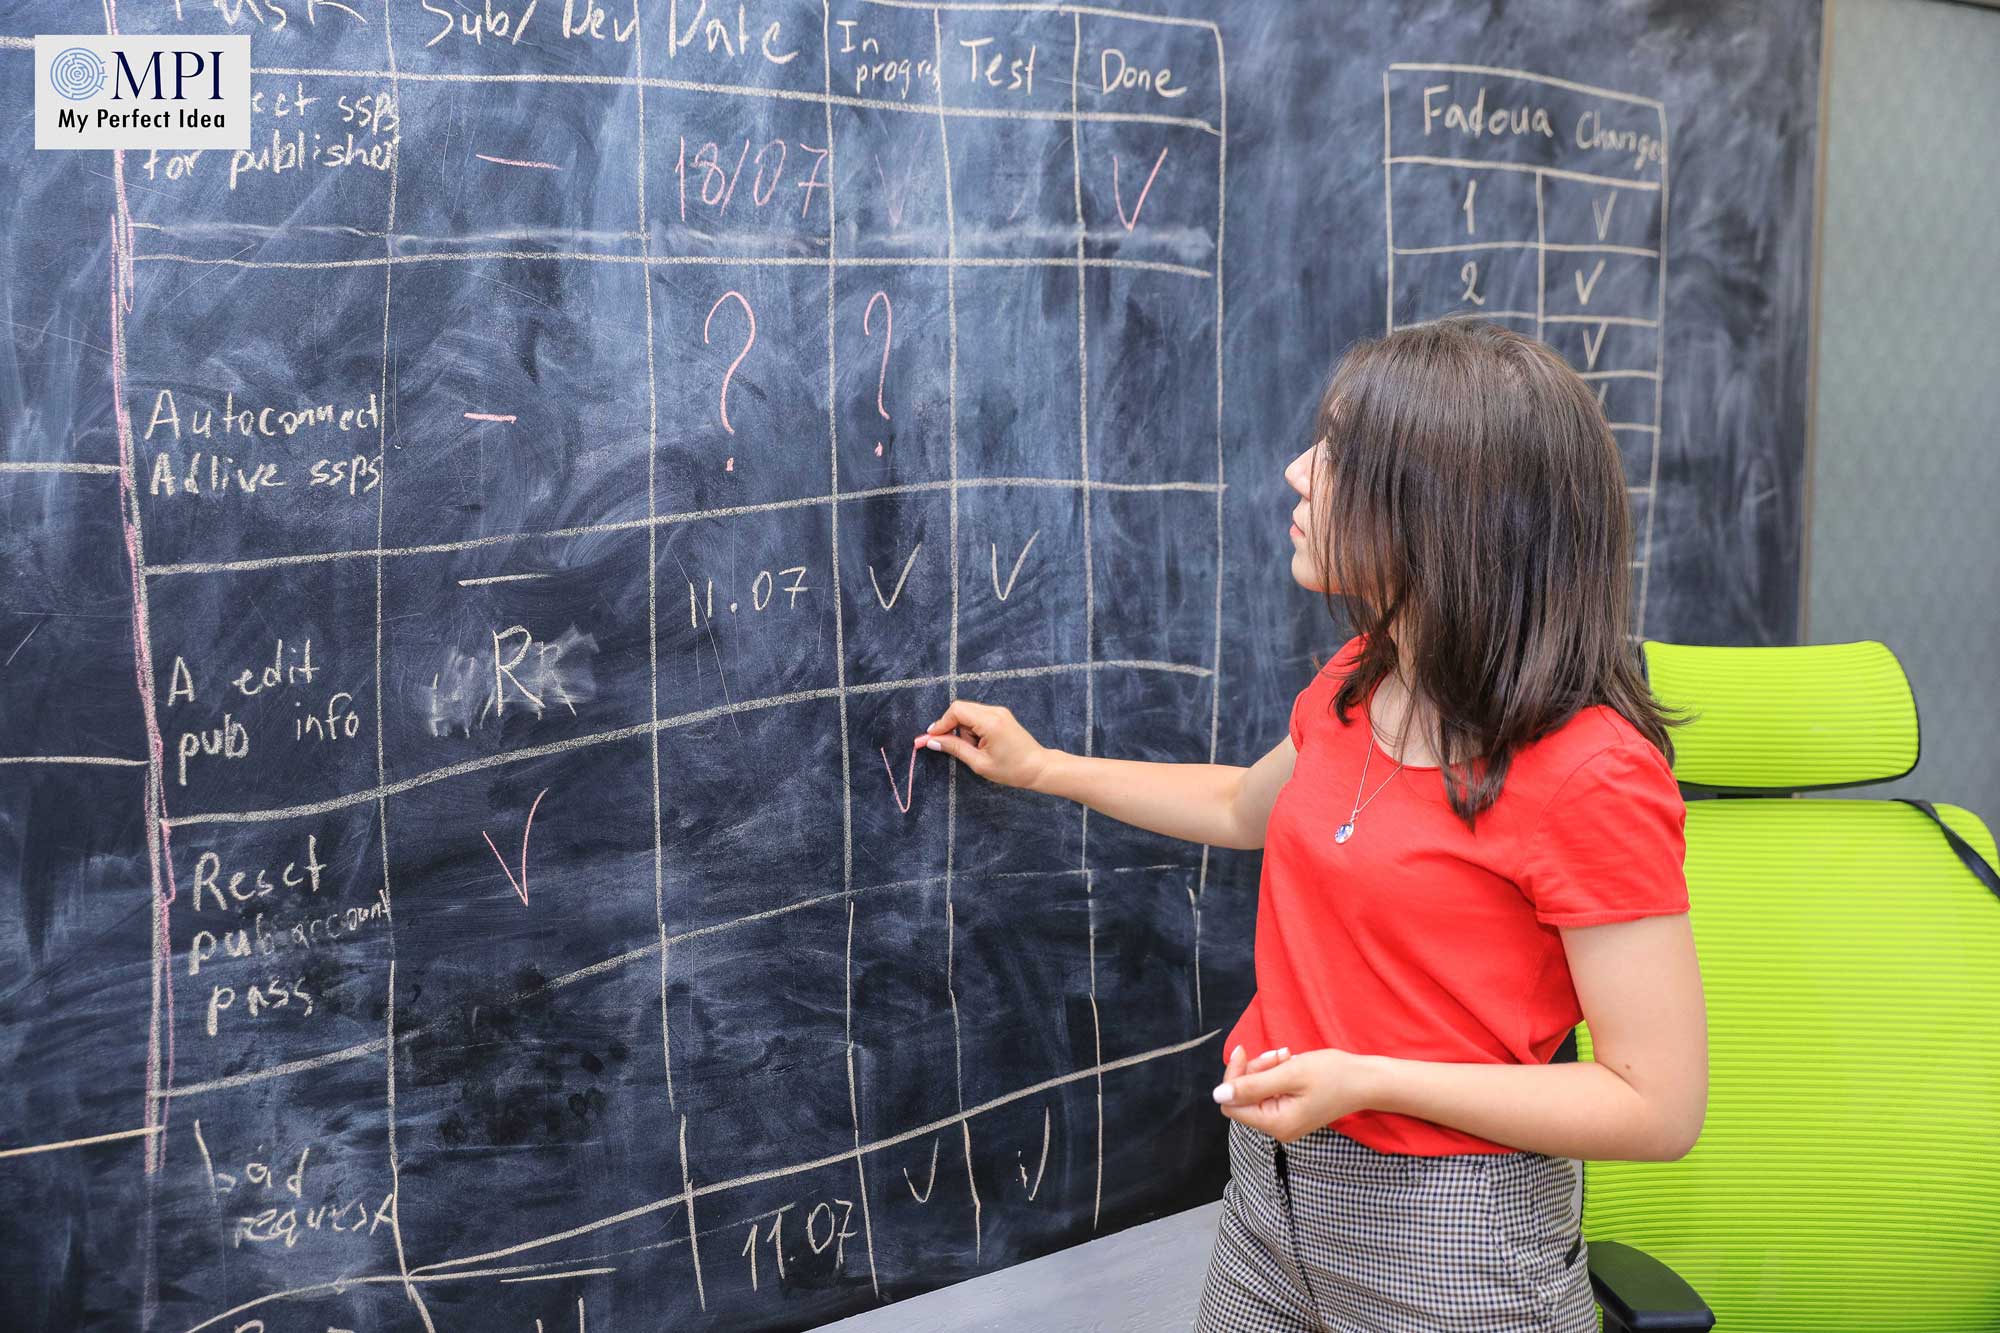 MPI
My Perfect Idea
Task Sub/Dev Date In progres Test Done
ect ssps
for publisher — 18/07 V V
Autoconnect
Adlive ssps — ? ?
— 11.07 V V
A edit
pub info R
V V
Reset
pub account
pass
bid
request 11.07 V V
Fadoua Changes
1 V
2 V
V